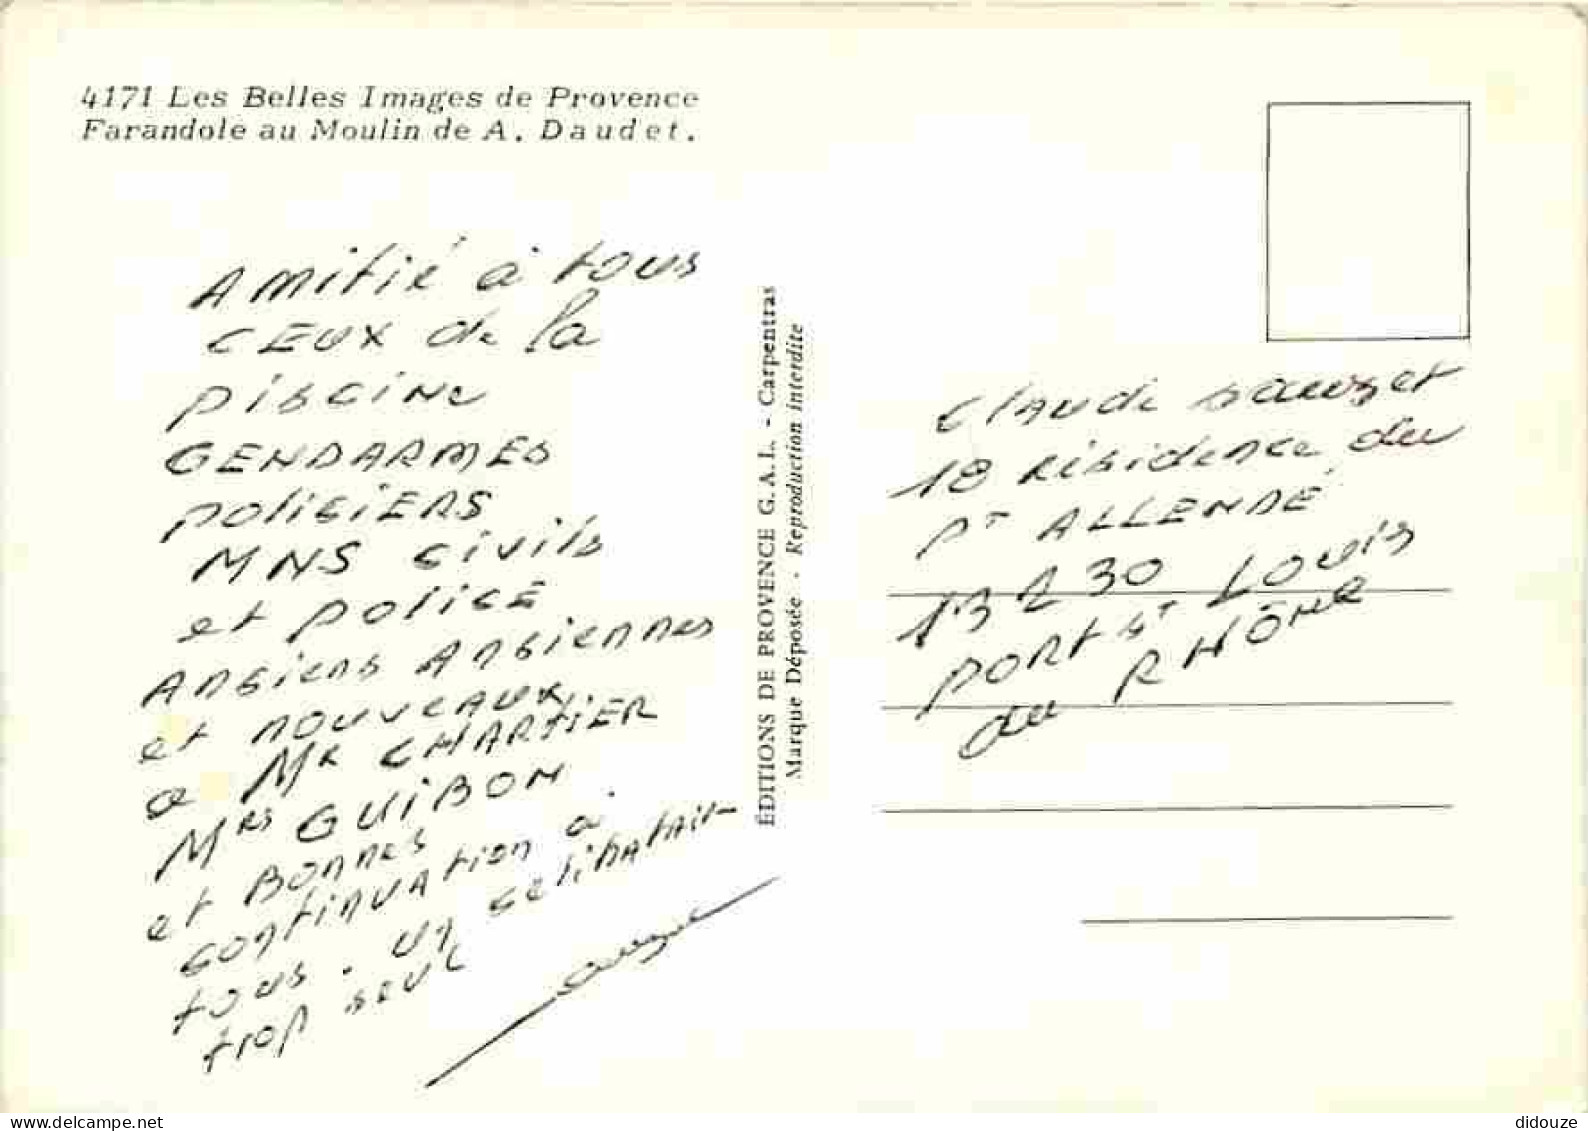 4171 Les Belles Images de Provence
Farandole au Moulin de A. Daudet.
Amitié à tous
CEUX de la
piscine
GENDARMES
poliсiERS
MNS civils
et policE
Ansiens Ansiennes
et nouveaux
a Mr CHARTIER
Mrs GUIBON
et BONNES
continuation à
tous. un selibatair
trop seul
ÉDITIONS DE PROVENCE G.A.L. - Carpentras
Marque Déposée - Reproduction interdite
Claude
18 résidence du
PT ALLENDE
13230
PORT ST LOUIS
du RHÔNE
delcampe.net
didouze